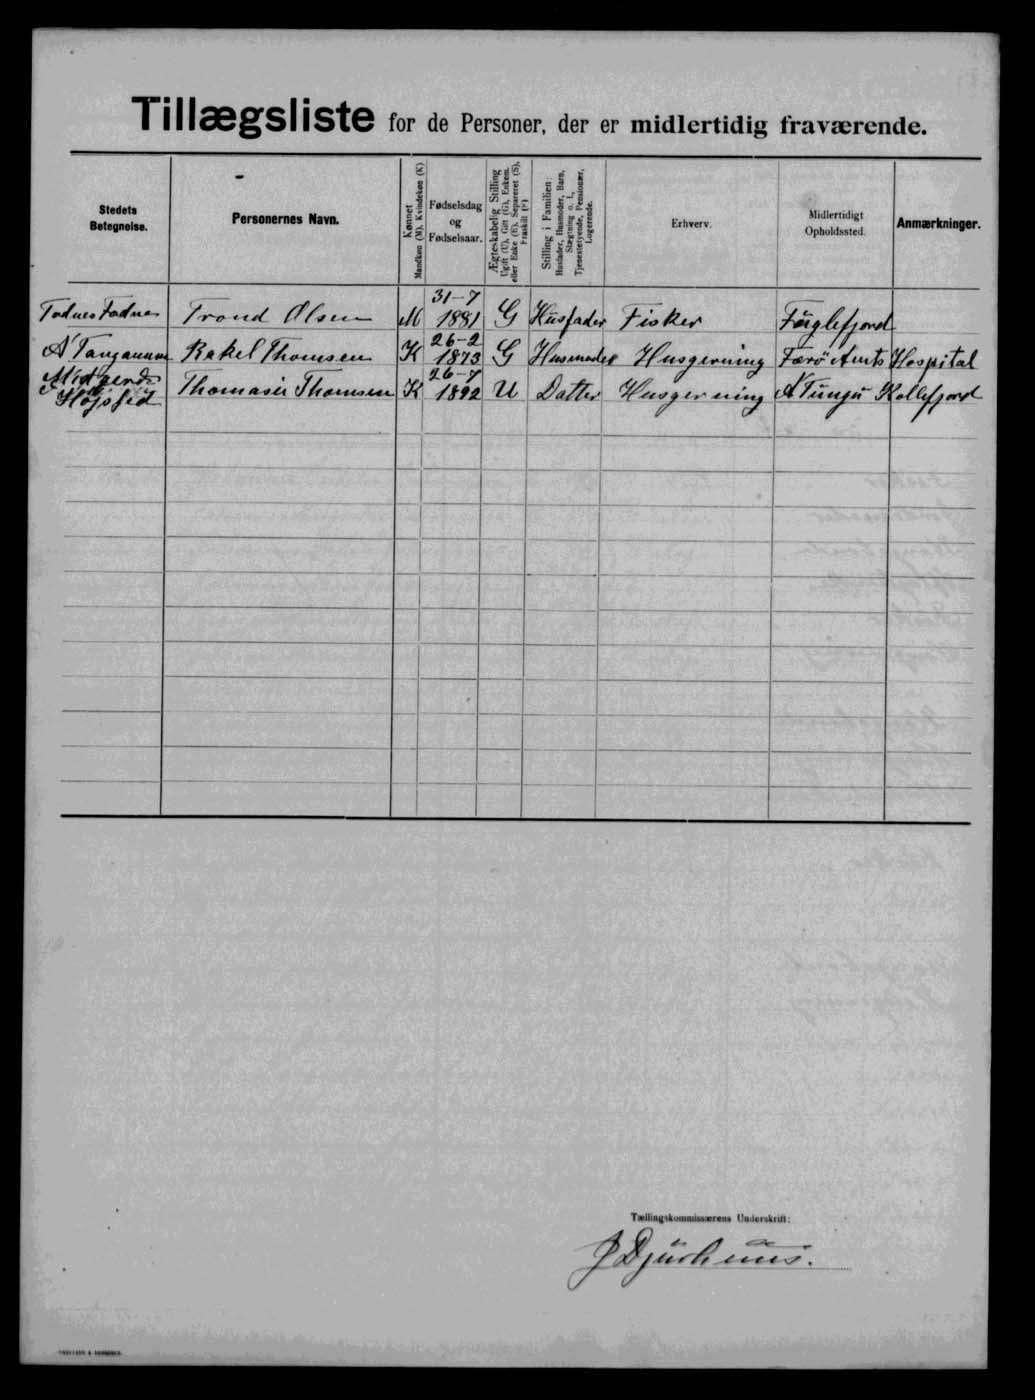 Tillægsliste for de Personer, der er midlertidig fraværende.
Stedets Betegnelse.
Personernes Navn.
Kønnet Mandkøn (M), Kvindekøn (K)
Fødselsdag og Fødselsaar.
Ægteskabelig Stilling Ugift (U), Gift (G), Enkem. eller Enke (E), Separeret (S), Fraskilt (F)
Stilling i Familien: Husfader, Husmoder, Barn, Slægtning o. l., Tjenestetyende, Pensionær, Logerende.
Erhverv.
Midlertidigt Opholdssted.
Anmærkninger.
Trond Olsen M 31-7 1881 G Husfader Fisker Fuglefjord
Rakel Thomsen K 26-2 1873 G Husmoder Husgerning Færø Amts Hospital
Thomasia Thomsen K 26-7 1892 U Datter Husgerning Kollefjord
Tællingskommissærens Underskrift:
J Djurhuus.